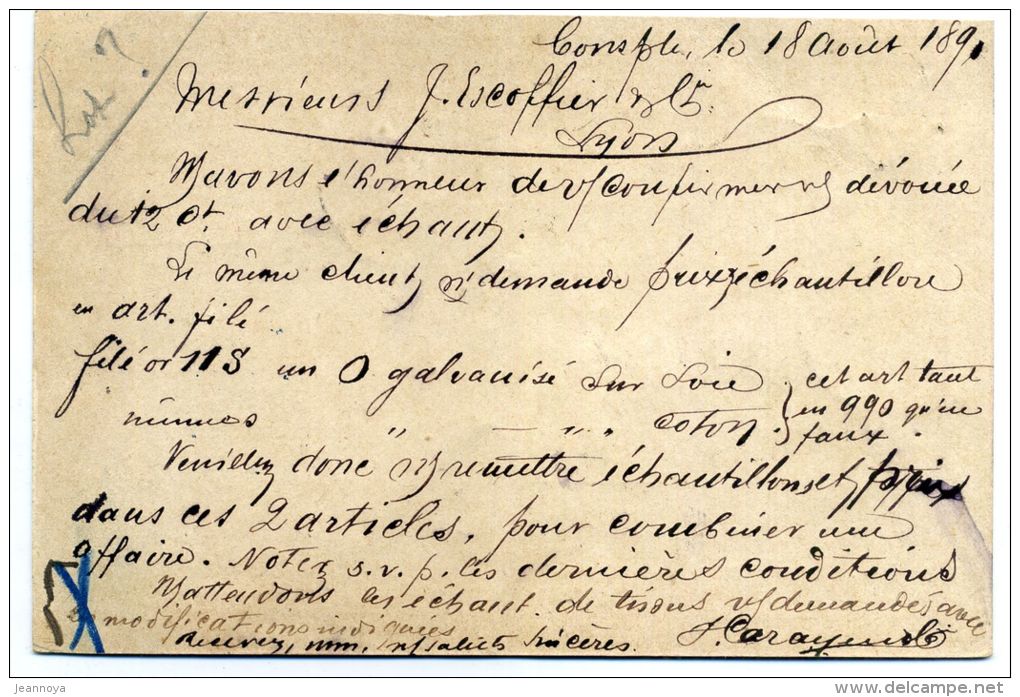 Consple, le 18 Août 1891
Messieurs J. Escoffier & Cie.
Lyon
N/avons l'honneur de v/confirmer n/ dévouée
du 12 Ct. avec échant/.
Le même client n/ demande prix & échantillons
en art. filé
filé or 11S un 0 galvanisé sur soie } cet art tant
" — " " coton } en 990 qu'en
faux.
Veuillez donc n/remettre échantillons et prix
dans ces 2 articles, pour combiner une
affaire. Notez s.v.p. les dernières conditions
N/attendons les échant. de tissus v/demandés avec
modifications indiquées
Recevez, mm, n/saluts sincères.
jeannoya
www.delcampe.net